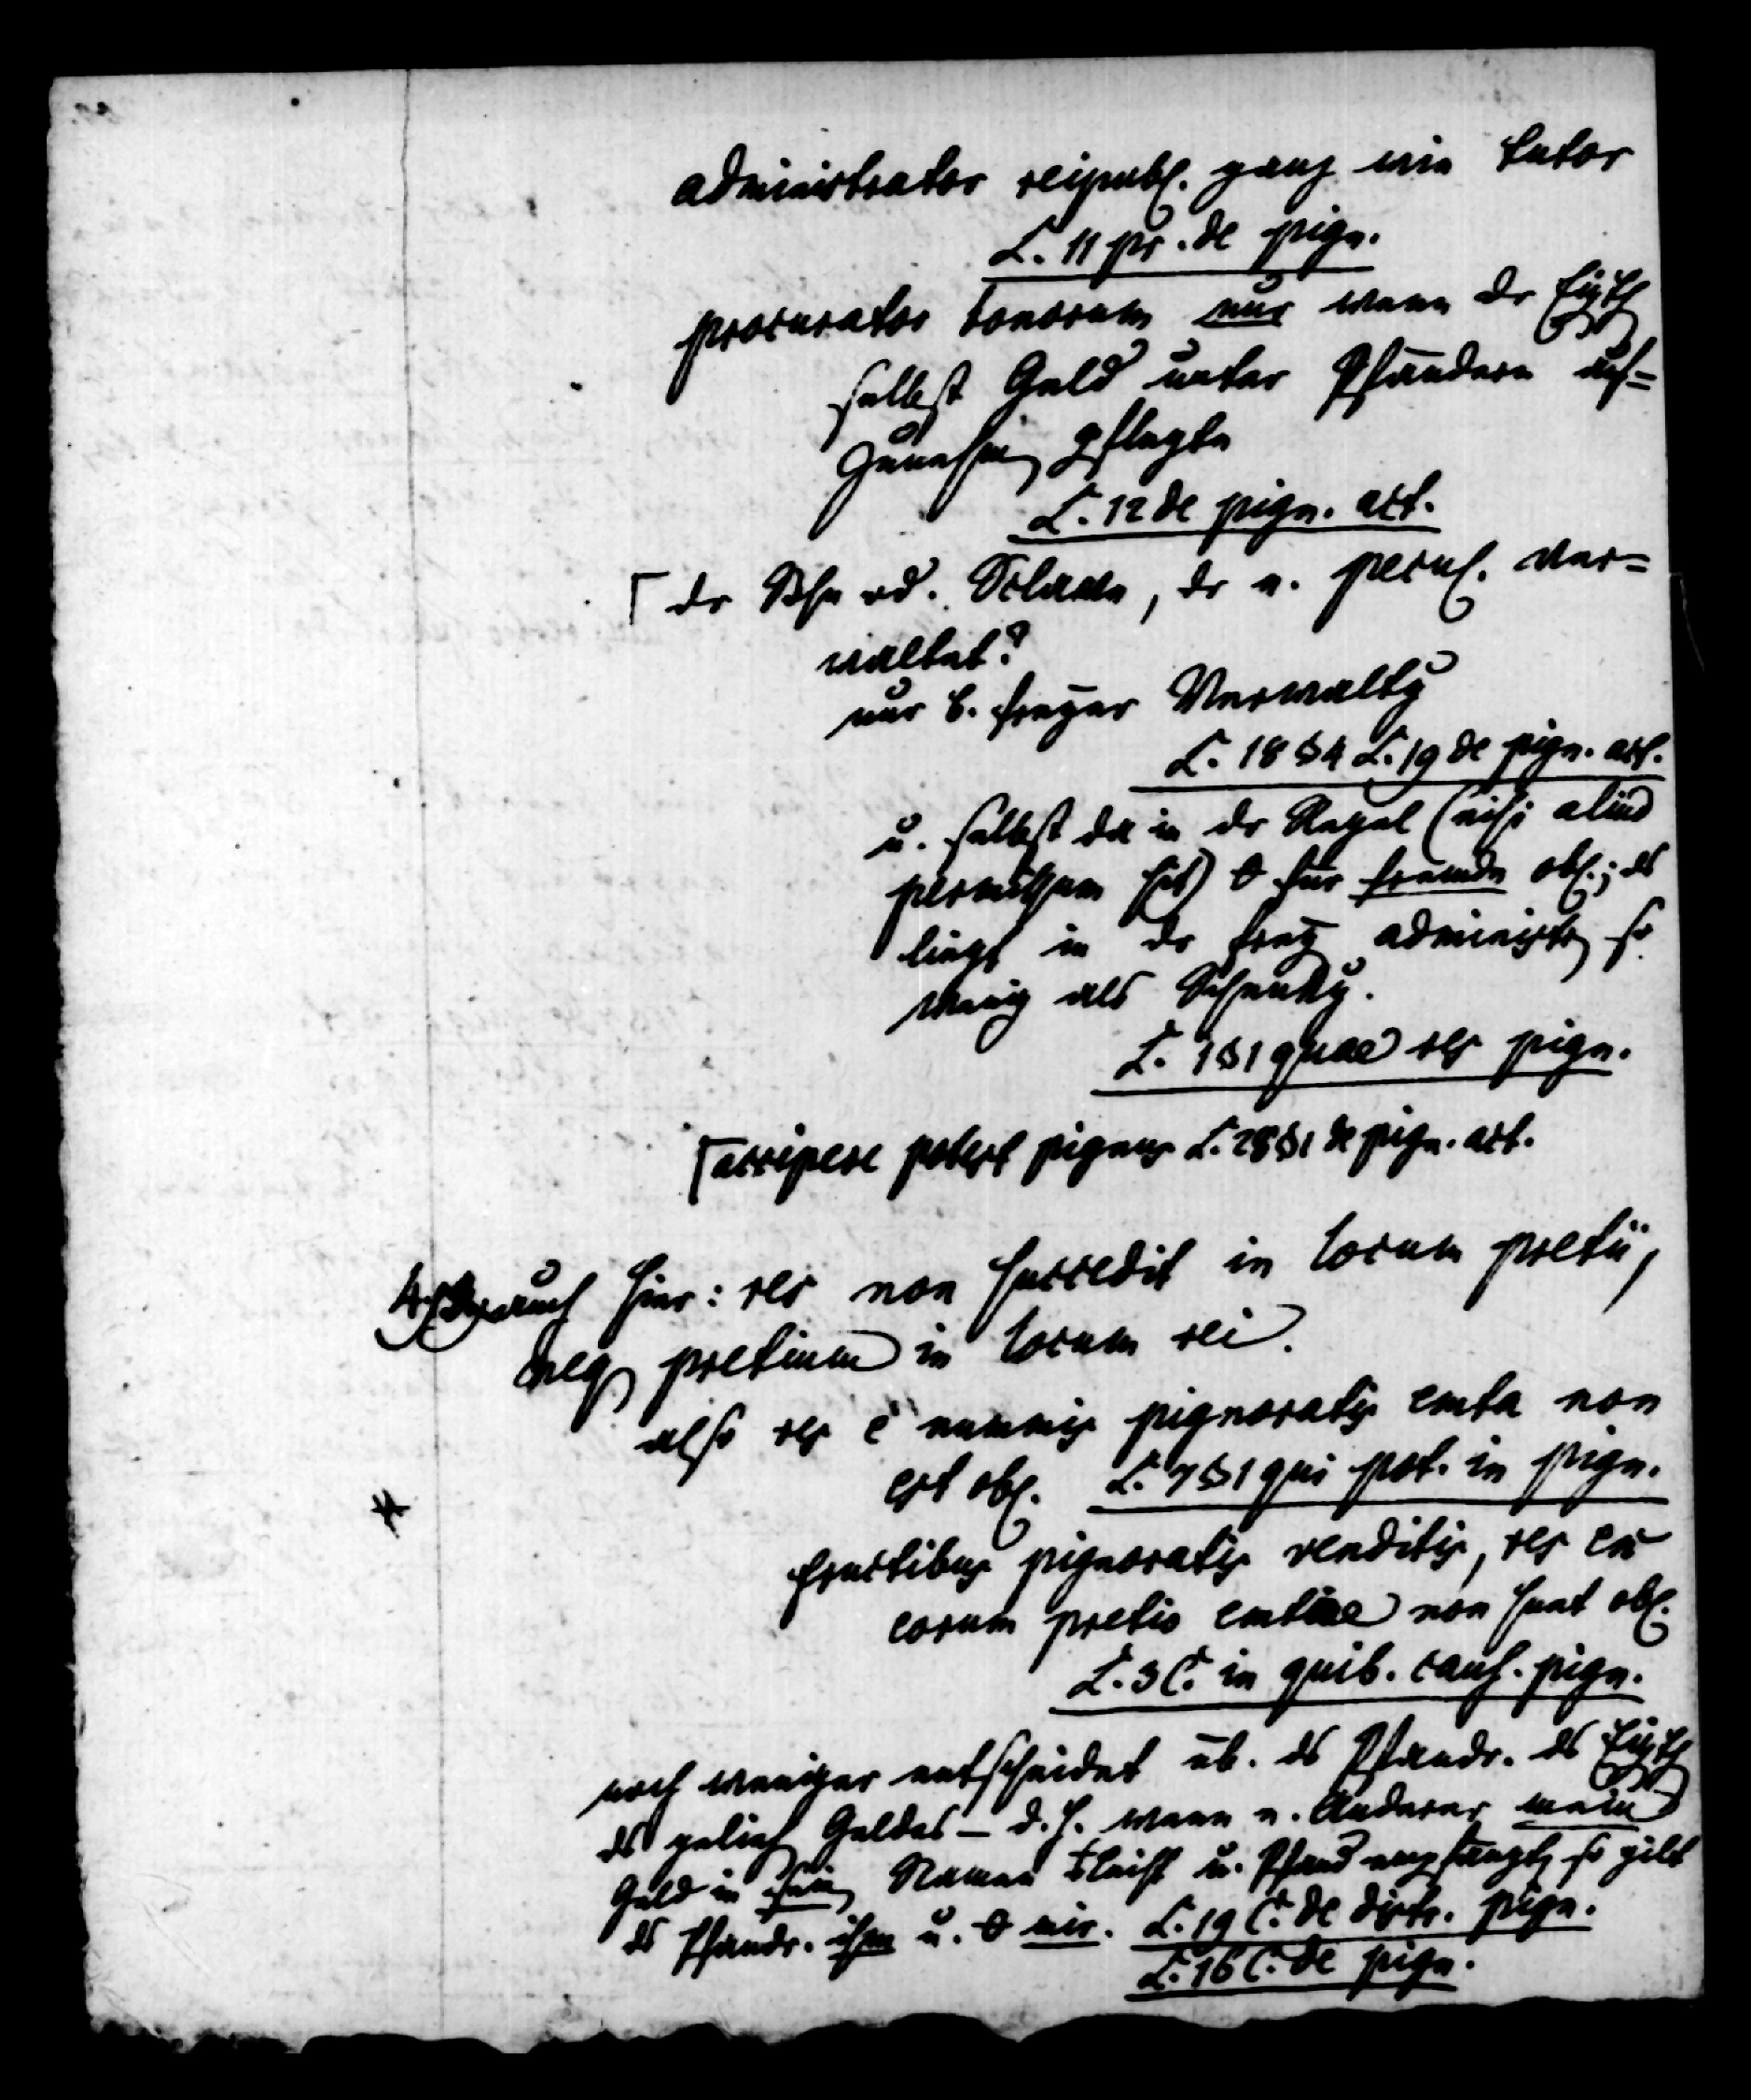 administrator reipubl. ganz wie tutor
L. 11 pr. de pign.
procurator bonorum nur wenn dr Eigth
selbst Geld unter Pfändern auf=
zunehm pflegte
L. 12 de pign. act.
┌ dr Sohn od. Sclave, dr e. pecul. ver=
waltet?
nur b. freyer Verwaltg
L. 18 §4 L. 19 de pign. act.
u. selbst da in dr Regel (nisi aliud
permissum sit) 0 für fremde obl.; ds
liegt in dr frey administr so
wenig als Schenkg.
L. 1 §1 quae res pign.
┌ accipere potest pignus L. 28 §1 de pign. act.
4) auch hier: res non succedit in locum pretii,
neq pretium in locum rei.
also res e nummis pignoratis emta non
est obl. L. 7 §1 qui pot. in pign.
fructibus pignoratis venditis, res ex
eorum pretio emtae non sunt obl.
L. 3 C. in quib. caus. pign.
noch weniger entscheidet üb. ds Pfandr. ds Eigth
ds gelieh Geldes – d. h. wenn e. Anderer mein
Geld in sein Namen leiht u. Pfand empfängt, so gilt
ds Pfandr. ihm u. 0 mir. L. 19 C. de distr. pign.
L. 16 C. de pign.